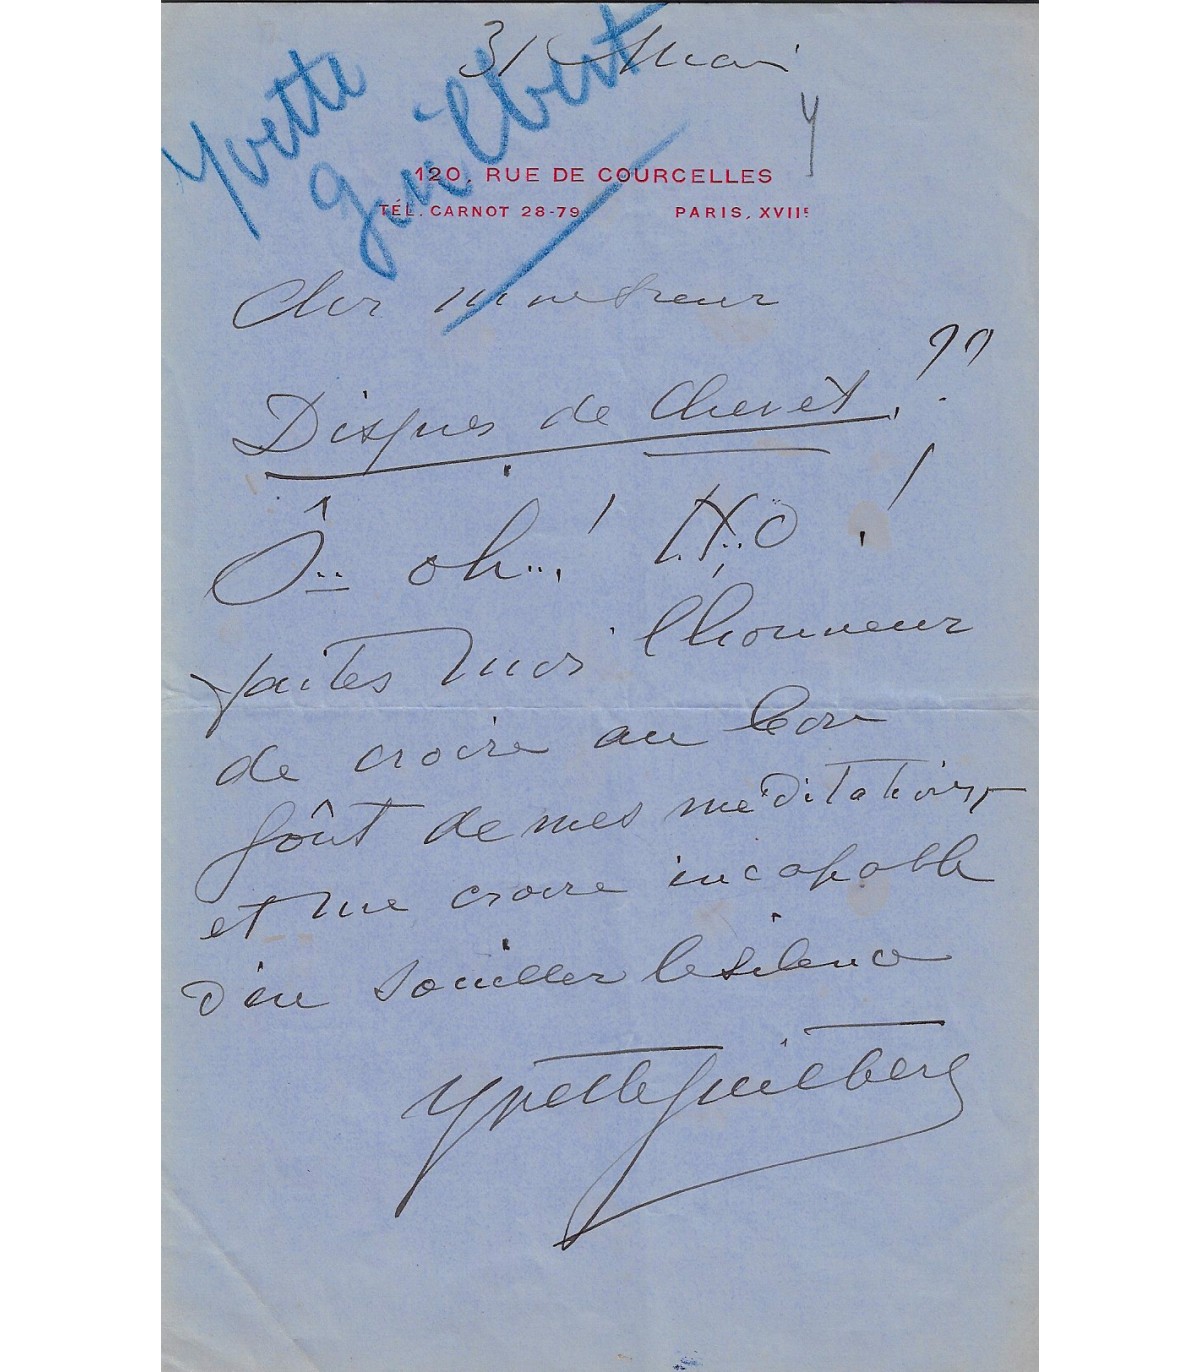 31 Mai
Yvette
Guilbert
Y
120, RUE DE COURCELLES
TÉL. CARNOT 28-79 PARIS, XVIIE
Cher monsieur
Disques de Chevet.??
Ô.. oh..!
faites moi l'honneur
de croire au bon
goût de mes méditations
et me croire incapable
d'en souiller le silence
Yvette Guilbert